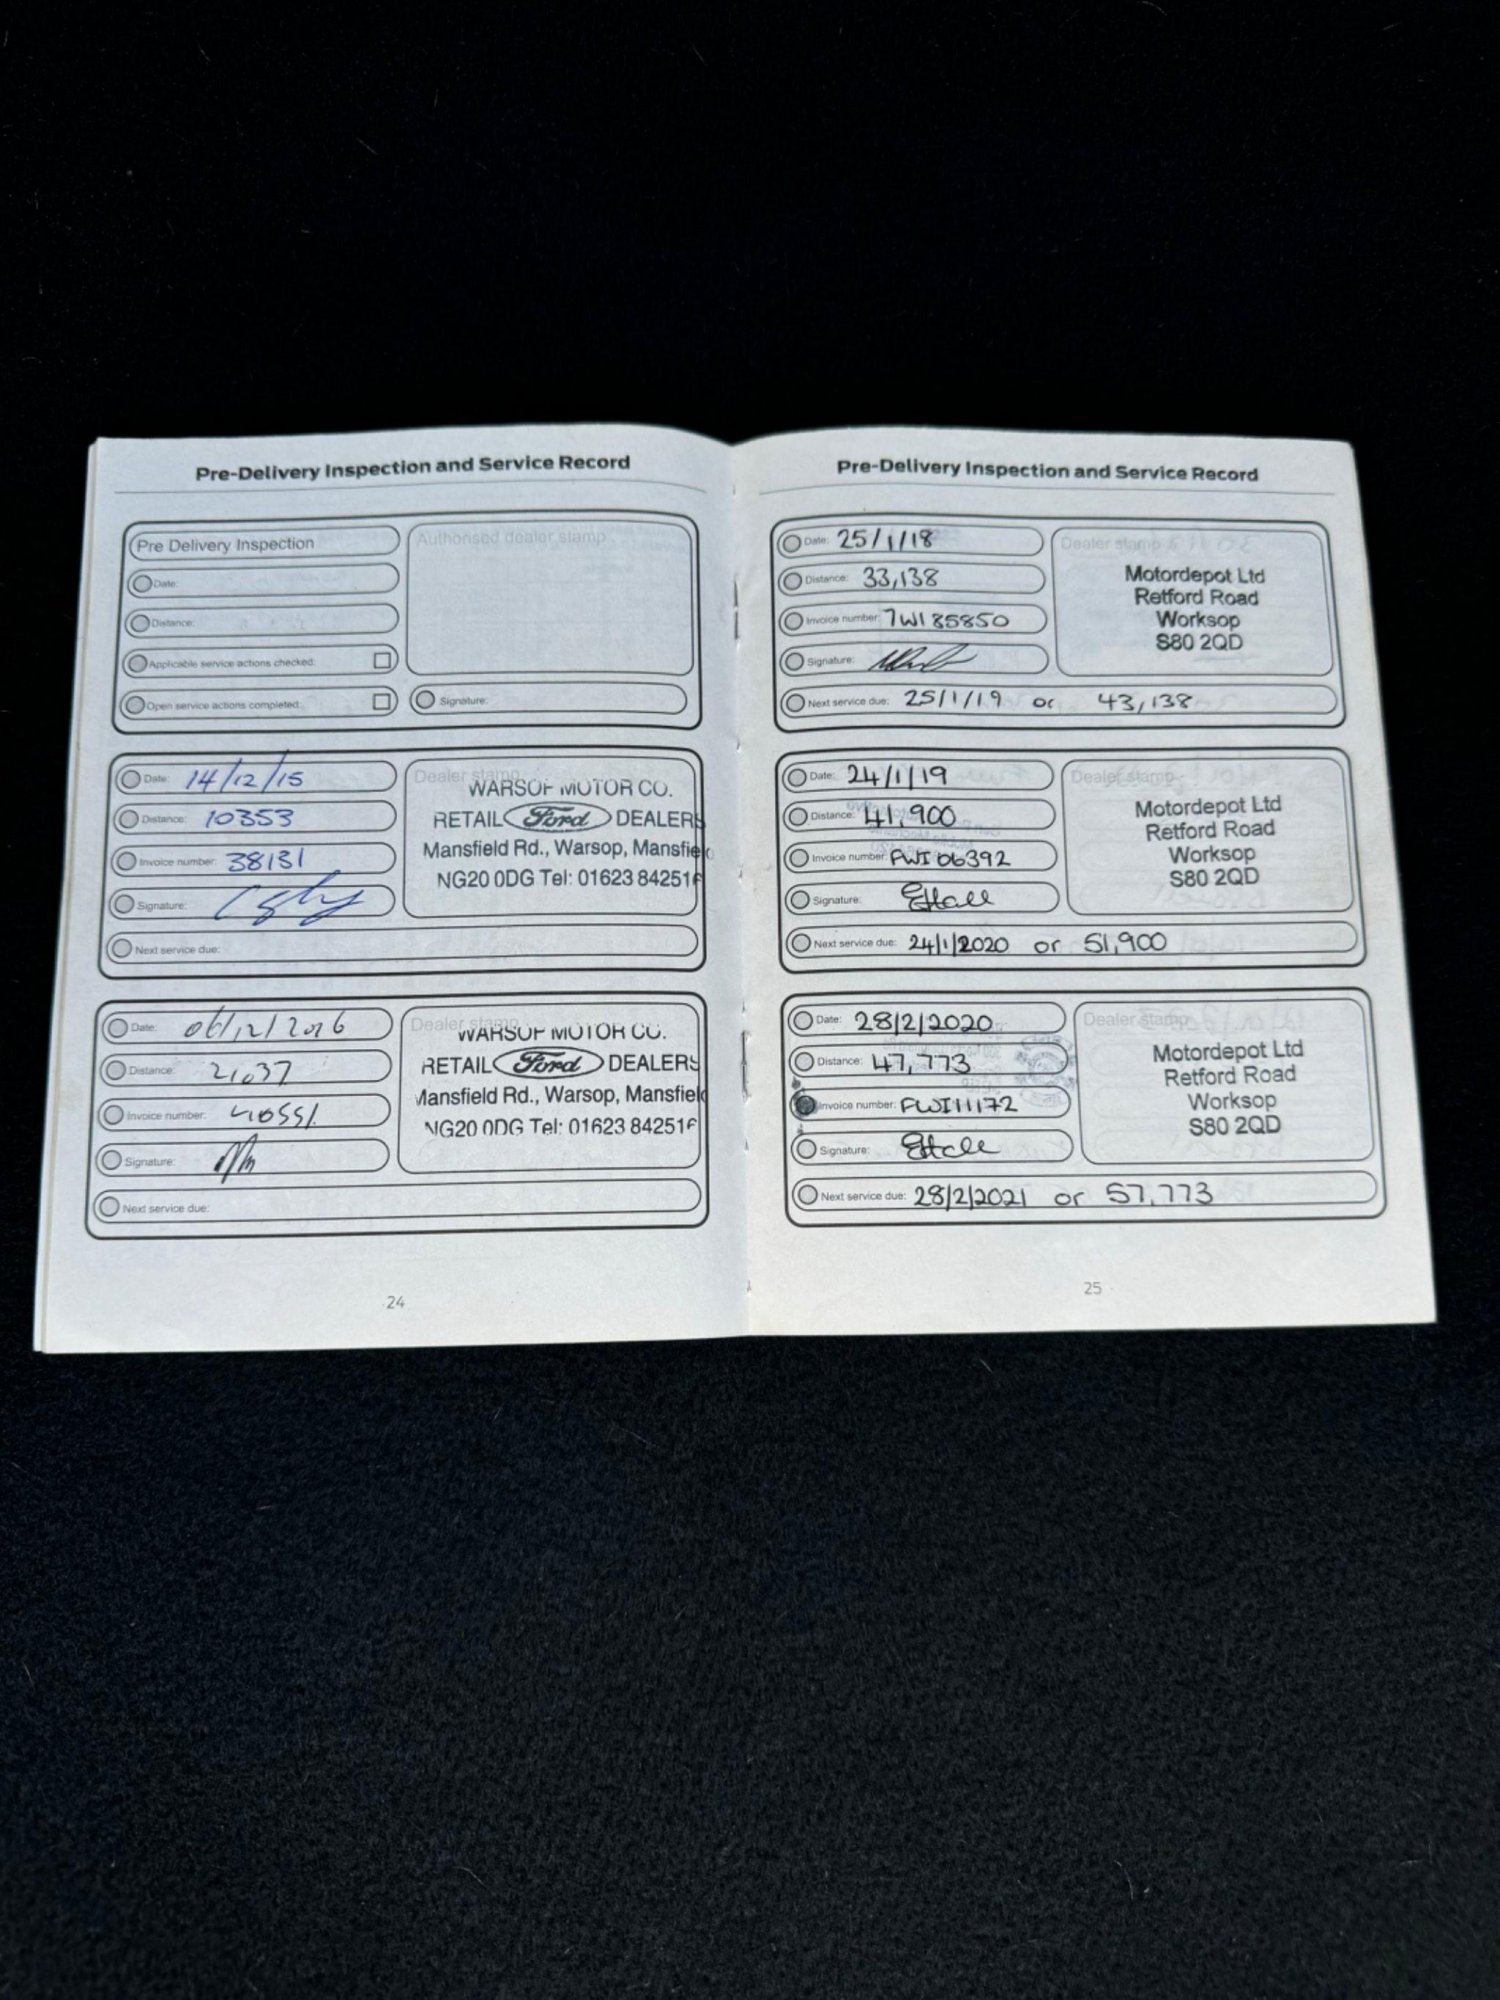 Pre-Delivery Inspection and Service Record
Pre Delivery Inspection
Authorised dealer stamp
Date:
Distance:
Applicable service actions checked:
Open service actions completed:
Signature:
Date: 14/12/15
Distance: 10353
Invoice number: 38131
Signature:
Next service due:
Dealer stamp
WARSOP MOTOR CO.
RETAIL Ford DEALERS
Mansfield Rd., Warsop, Mansfiel
NG20 0DG Tel: 01623 84251
Date: 06/12/2016
Distance: 21037
Invoice number:
Signature:
Next service due:
Dealer stamp
WARSOP MOTOR CO.
RETAIL Ford DEALERS
Mansfield Rd., Warsop, Mansfiel
NG20 0DG Tel: 01623 84251
24
Pre-Delivery Inspection and Service Record
Date: 25/1/18
Distance: 33,138
Invoice number: 7WI85850
Signature:
Next service due: 25/1/19 or 43,138
Dealer stamp
Motordepot Ltd
Retford Road
Worksop
S80 2QD
Date: 24/1/19
Distance: 41,900
Invoice number: PWI06392
Signature: EHall
Next service due: 24/1/2020 or 51,900
Dealer stamp
Motordepot Ltd
Retford Road
Worksop
S80 2QD
Date: 28/2/2020
Distance: 47,773
Invoice number: PWI11172
Signature: EHall
Next service due: 28/2/2021 or 57,773
Dealer stamp
Motordepot Ltd
Retford Road
Worksop
S80 2QD
25